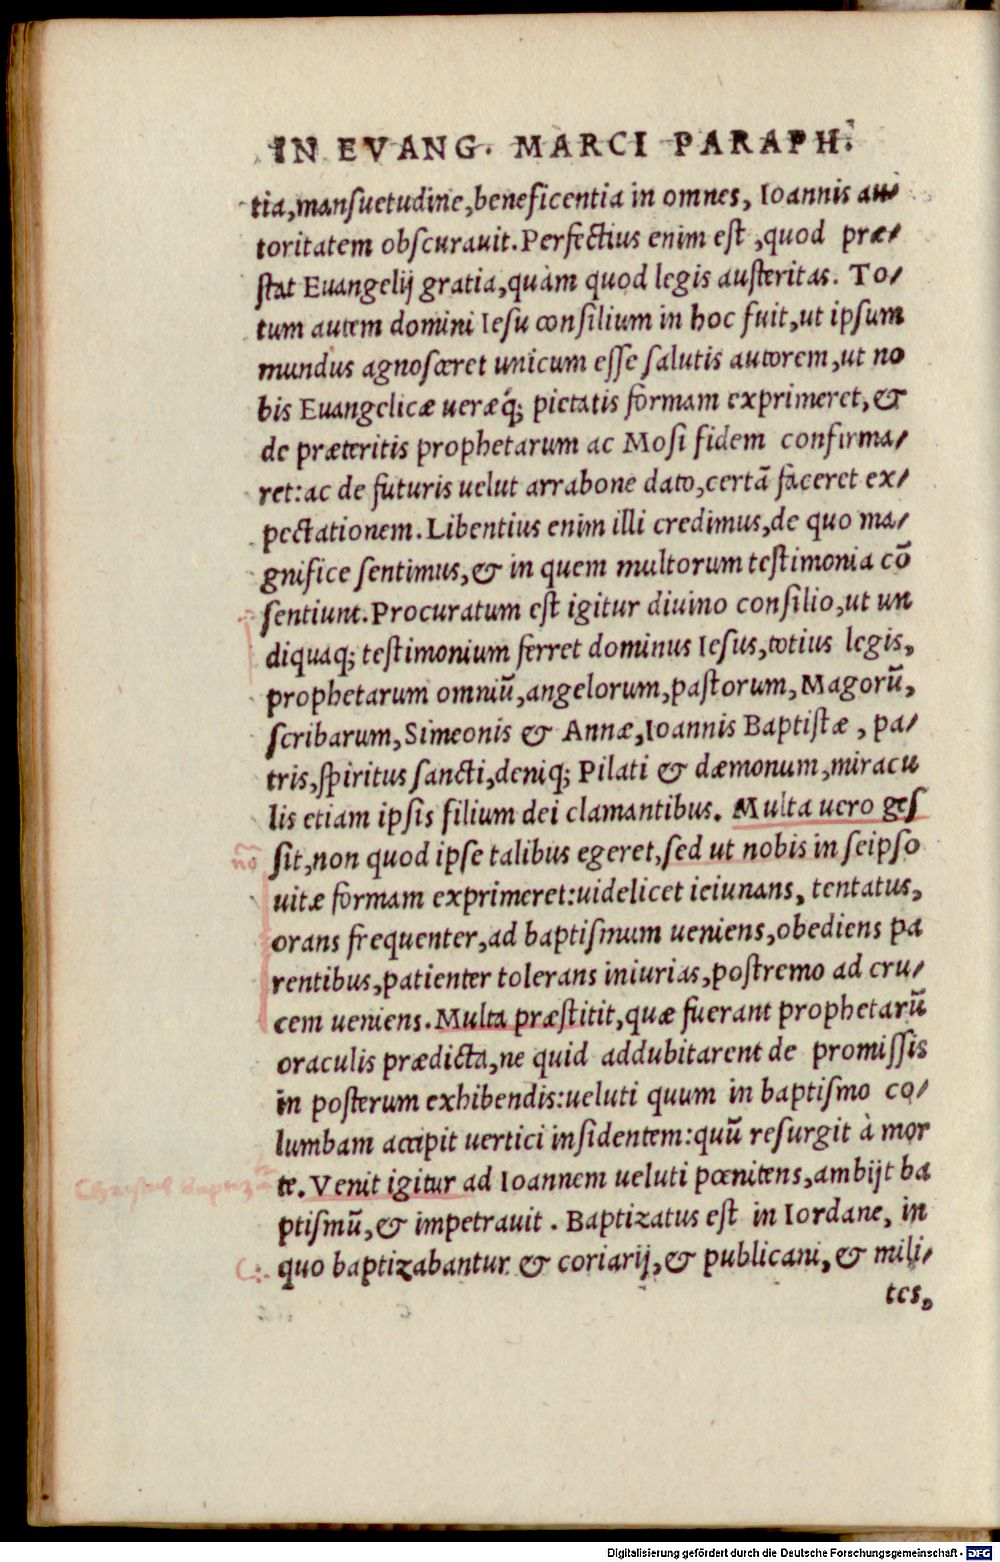 IN EVANG. MARCI PARAPH.
tia,mansuetudine,beneficentia in omnes, Ioannis au/
toritatem obscurauit.Perfectius enim est ,quod præ/
stat Euangelij gratia,quàm quod legis austeritas. To/
tum autem domini Iesu consilium in hoc fuit,ut ipsum
mundus agnosceret unicum esse salutis autorem,ut no
bis Euangelicæ ueræq́; pietatis formam exprimeret,&
de præteritis prophetarum ac Mosi fidem confirma/
ret:ac de futuris uelut arrabone dato,certā faceret ex/
pectationem.Libentius enim illi credimus,de quo ma/
gnifice sentimus,& in quem multorum testimonia cō
sentiunt.Procuratum est igitur diuino consilio,ut un
diquaq; testimonium ferret dominus Iesus,totius legis,
prophetarum omniū,angelorum,pastorum,Magorū,
scribarum,Simeonis & Annæ,Ioannis Baptistæ , pa/
tris,spiritus sancti,deniq; Pilati & dæmonum,miracu
lis etiam ipsis filium dei clamantibus. Multa uero ges
sit,non quod ipse talibus egeret,sed ut nobis in seipso
uitæ formam exprimeret:uidelicet ieiunans, tentatus,
orans frequenter,ad baptismum ueniens,obediens pa
rentibus,patienter tolerans iniurias,postremo ad cru/
cem ueniens.Multa præstitit,quæ fuerant prophetarū
oraculis prædicta,ne quid addubitarent de promissis
in posterum exhibendis:ueluti quum in baptismo co/
lumbam accipit uertici insidentem:quū resurgit à mor
te.Venit igitur ad Ioannem ueluti pœnitens,ambijt ba
Christus
ptismū,& impetrauit . Baptizatus est in Iordane, in
quo baptizabantur & coriarij,& publicani,& mili/
tes,
Digitalisierung gefördert durch die Deutsche Forschungsgemeinschaft - DFG